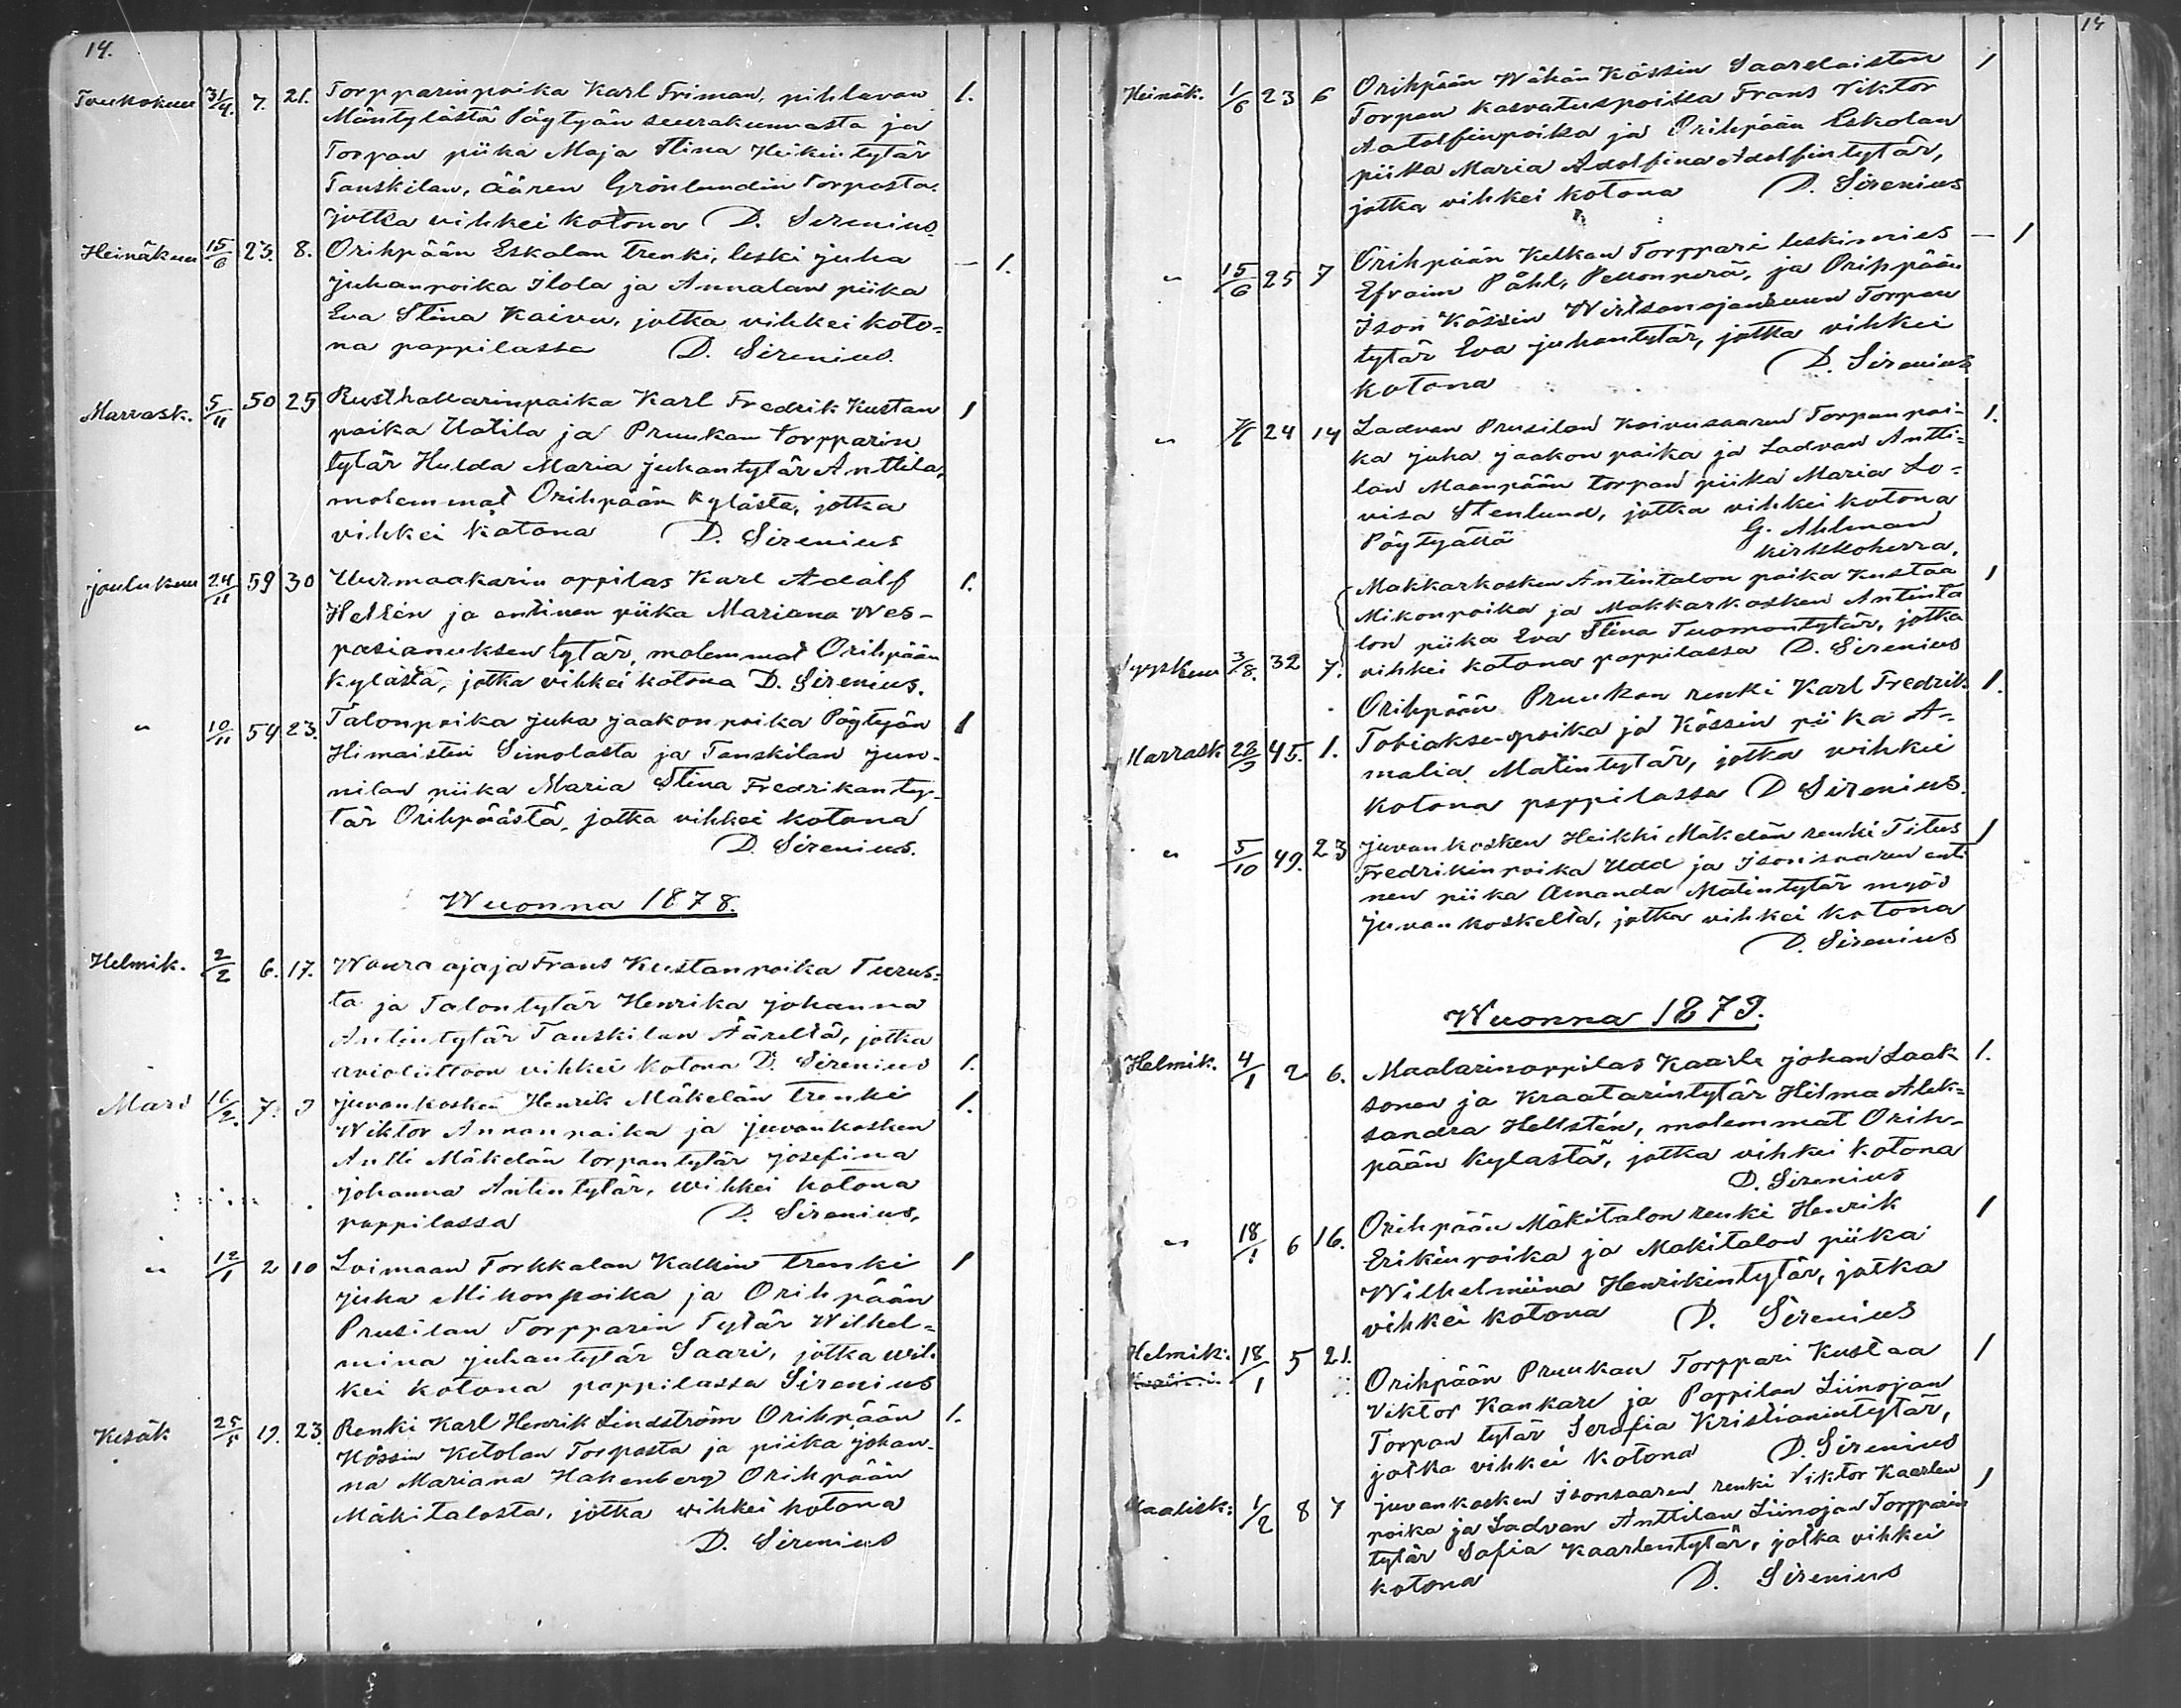 14.
Toukokuu 31/4. 7. 21. Torpparinpoika Karl Friman, pihlavan 1.
Mäntylästä Pöytyän seurakunnasta ja
Torpan piika Maja Stina Heikintytär
Tanskilan, äären Grönlundin Torpasta.
jotka vihkei kotona D. Sirenius.
Heinäkuu 15/6 23. 8. Orihpään Eskolan trenki, leski juha — 1.
juhanpoika Ilola ja Annalan piika
Eva Stina Kaivu, jotka vihkei koto=
na pappilassa D. Sirenius.
Marrask. 5/11 50 25 Rusthollarinpoika Karl Fredrik Kustan 1
poika Uotila ja Pruukan torpparin
tytär Hulda Maria juhantytär Anttila,
molemmat Orihpään kylästä, jotka
vihkei kotona D. Sirenius
joulukuu 24/11 59 30 Uurmaakarin oppilas Karl Adolf 1.
Hellén ja entinen piika Mariana Wes-
pasianuksen tytär, molemmat Orihpään
kylästä, jotka vihkei kotona D. Sirenius.
" 10/11 54 23. Talonpoika juha jaakonpoika Pöytyän 1
Himaisten Simolasta ja Tanskilan jun-
nilan piika Maria Stina Fredrikanty-
tär Orihpäästä, jotka vihkei kotona
D. Sirenius.
Wuonna 1878.
Helmik. 2/2 6. 17. Wouraajaja Frans Kustanpoika Turus=
ta ja Talontytär Henrika johanna
Antintytär Tanskilan Äärellä, jotka
avioliittoon vihkei kotona D. Sirenius 1.
Mars 16/2. 7. 9 juvankosken Henrik Mäkelän trenki 1.
Wiktor Annanpoika ja juvankosken
Antti Mäkelän torpantytär josefina
johanna Antintytär, wihkei kotona
pappilassa D. Sirenius,
" 12/1 2 10 Loimaan Torkkalan Kallin trenki 1
juha Mikonpoika ja Orihpään
Prusilan Torpparin Tytär Wilhel=
mina juhantytär Saari, jotka wih
kei kotona pappilassa Sirenius
Kesäk 25/5 19. 23. Renki Karl Henrik Lindström Orihpään 1.
Kössin Ketolan Torpasta ja piika johan-
na Mariana Hakenberg Orihpään
Mäkitalosta, jotka wihkei kotona
D. Sirenius
14
Heinäk. 1/6 23 6 Orihpään Wähän Kössin Saarelaisten 1
Torpan kasvatuspoika Frans Viktor
Aatolfinpoika ja Orihpään Eskolan
piika Maria Adolfina Adolfintytär,
jotka vihkei kotona D. Sirenius
" 15/6 25 7 Orihpään Kelkan Torppari leskimies — 1
Efraim Påhl, Pellonperä, ja Orihpään
Ison Kössin Wirtsanojansuun Torpan
tytär Eva juhantytär, jotka vihkei
kotona D. Sirenius
" 24 14 Ladvan Prusilan Koivusaaren Torpan poi- 1.
ka juha jaakonpoika ja Ladvan Antti=
lan Maanpään torpan piika Maria Lo=
visa Stenlund, jotka vihkei kotona
Pöytyällä G. Ahlman
kirkkoherra.
Makkarkosken Antintalon poika Kustaa 1
Mikonpoika ja Makkarkosken Antinta
lon piika Eva Stina Tuomontytär, jotka
Syyskuu 3/8. 32 7. vihkei kotona pappilassa D. Sirenius
Orihpään Pruukan renki Karl Fredrik 1.
Marrask 28/9 45. 1. Tobiaksenpoika ja Kössin piika A-
malia Matintytär, jotka wihkei
kotona pappilassa D Sirenius.
" 5/10 49. 23 juvankosken Heikki Mäkelän renki Titus 1
Fredrikinpoika Udd ja Isonsaaren enti
nen piika Amanda Matintytär myös
juvankoskelta, jotka vihkei kotona
D. Sirenius
Wuonna 1879.
Helmik. 4/1 2 6. Maalarinoppilas Kaarle johan Laak 1.
sonen ja Kraatarintytär Hilma Alek=
sandra Hellstén, molemmat Orih-
pään kylästä, jotka vihkei kotona
D. Sirenius
" 18/1 6 16. Orihpään Mäkitalon renki Henrik 1
Erikinpoika ja Mäkitalon piika
Wilhelmiina Henrikintytär, jotka
vihkei kotona D. Sirenius
Helmik: 18/1 5 21. Orihpään Pruukan Torppari Kustaa 1
Viktor Kankare ja Pappilan Liinojan
Torpan tytär Serafia Kristianintytär,
jotka vihkei kotona D. Sirenius
Maalisk: 1/2 8 7 juvankosken Isonsaaren renki Viktor Kaarlen 1
poika ja Ladvan Anttilan Liinojan Torpparin
tytär Sofia Kaarlentytär, jotka vihkei
kotona D. Sirenius